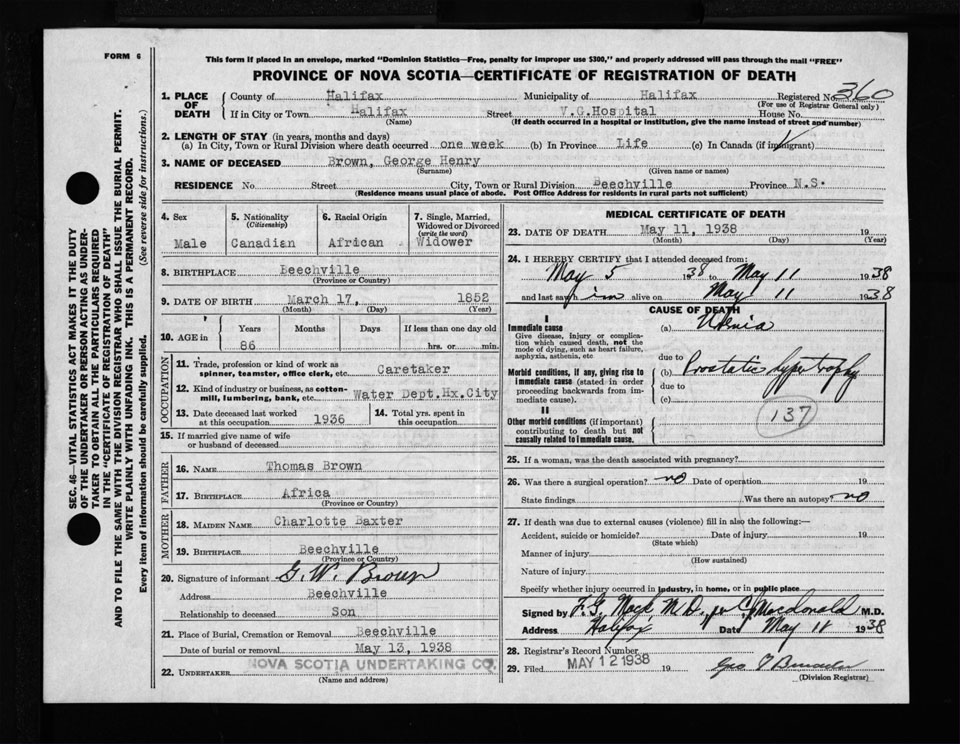 FORM 6
This form if placed in an envelope, marked "Dominion Statistics—Free, penalty for improper use $300," and properly addressed will pass through the mail "FREE"
PROVINCE OF NOVA SCOTIA—CERTIFICATE OF REGISTRATION OF DEATH
SEC. 46—VITAL STATISTICS ACT MAKES IT THE DUTY
OF THE UNDERTAKER OR PERSON ACTING AS UNDER-
TAKER TO OBTAIN ALL THE PARTICULARS REQUIRED
IN THE "CERTIFICATE OF REGISTRATION OF DEATH"
AND TO FILE THE SAME WITH THE DIVISION REGISTRAR WHO SHALL ISSUE THE BURIAL PERMIT.
WRITE PLAINLY WITH UNFADING INK. THIS IS A PERMANENT RECORD.
Every item of information should be carefully supplied. (See reverse side for instructions.)
1. PLACE OF DEATH County of Halifax Municipality of Halifax Registered No. 360
(For use of Registrar General only)
If in City or Town Halifax Street V.G.Hospital House No.
(Name) (If death occurred in a hospital or institution, give the name instead of street and number)
2. LENGTH OF STAY (in years, months and days)
(a) In City, Town or Rural Division where death occurred one week (b) In Province Life (c) In Canada (if immigrant)
3. NAME OF DECEASED Brown, George Henry
(Surname) (Given name or names)
RESIDENCE No. Street City, Town or Rural Division Beechville Province N.S.
(Residence means usual place of abode. Post Office Address for residents in rural parts not sufficient)
4. Sex Male
5. Nationality (Citizenship) Canadian
6. Racial Origin African
7. Single, Married, Widowed or Divorced (write the word) Widower
8. BIRTHPLACE Beechville
(Province or Country)
9. DATE OF BIRTH March 17, 1852
(Month) (Day) (Year)
10. AGE in Years Months Days If less than one day old
86 hrs. or min.
OCCUPATION
11. Trade, profession or kind of work as spinner, teamster, office clerk, etc. Caretaker
12. Kind of industry or business, as cotton-mill, lumbering, bank, etc. Water Dept.Hx.City
13. Date deceased last worked at this occupation 1936
14. Total yrs. spent in this occupation
15. If married give name of wife or husband of deceased
FATHER
16. NAME Thomas Brown
17. BIRTHPLACE Africa
(Province or Country)
MOTHER
18. MAIDEN NAME Charlotte Baxter
19. BIRTHPLACE Beechville
(Province or Country)
20. Signature of informant G. W. Brown
Address Beechville
Relationship to deceased Son
21. Place of Burial, Cremation or Removal Beechville
Date of burial or removal May 13, 1938
22. UNDERTAKER NOVA SCOTIA UNDERTAKING CO.
(Name and address)
MEDICAL CERTIFICATE OF DEATH
23. DATE OF DEATH May 11, 1938 19
(Month) (Day) (Year)
24. I HEREBY CERTIFY that I attended deceased from:
May 5 1938 to May 11 1938
and last saw him alive on May 11 1938
CAUSE OF DEATH
I
Immediate cause (a)
Give disease, injury or complication which caused death, not the mode of dying, such as heart failure, asphyxia, asthenia, etc
due to
Morbid conditions, if any, giving rise to immediate cause (stated in order proceeding backwards from immediate cause). (b) Prostatic hypertrophy
due to
(c)
II
Other morbid conditions (if important) contributing to death but not causally related to immediate cause.
137
25. If a woman, was the death associated with pregnancy?
26. Was there a surgical operation? no Date of operation 19
State findings Was there an autopsy? no
27. If death was due to external causes (violence) fill in also the following:—
Accident, suicide or homicide? Date of injury 19
(State which)
Manner of injury
(How sustained)
Nature of injury
Specify whether injury occurred in industry, in home, or in public place
Signed by F.G. Mack M.D. per C. Macdonald M.D.
Address Halifax Date May 11 1938
28. Registrar's Record Number
29. Filed MAY 12 1938 19
(Division Registrar)